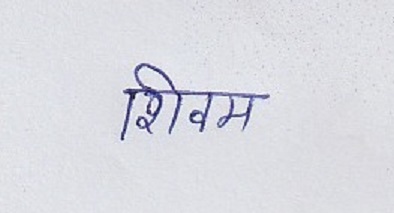 शिवम